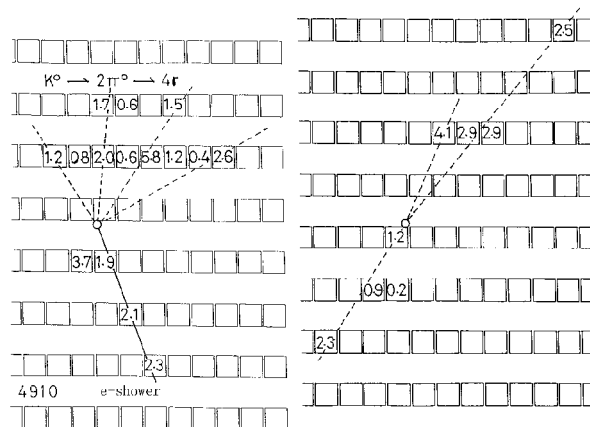 K° → 2π° → 4r
1.7 0.6 1.5
1.2 0.8 2.0 0.6 5.8 1.2 0.4 2.6
3.7 1.9
2.1
2.3
4910 e-shower
2.5
4.1 2.9 2.9
1.2
0.9 0.2
2.3